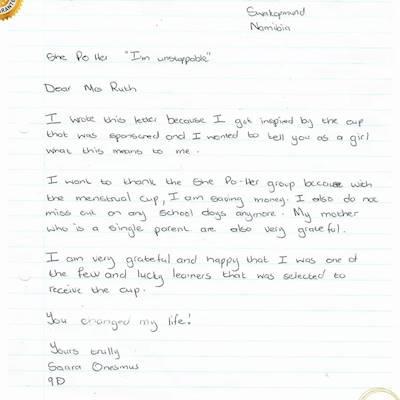 Swakopmund
Namibia
She Po Her "I'm unstoppable"
Dear Mrs Ruth
I wrote this letter because I got inspired by the cup
that was sponsored and I wanted to tell you as a girl
what this means to me.
I want to thank the She Po-Her group because with
the menstrual cup, I am saving money. I also do not
miss out on any school days anymore. My mother
who is a single parent are also very grateful.
I am very grateful and happy that I was one of
the few and lucky learners that was selected to
receive the cup.
You changed my life!
Yours trully
Saara Onesmus
9D